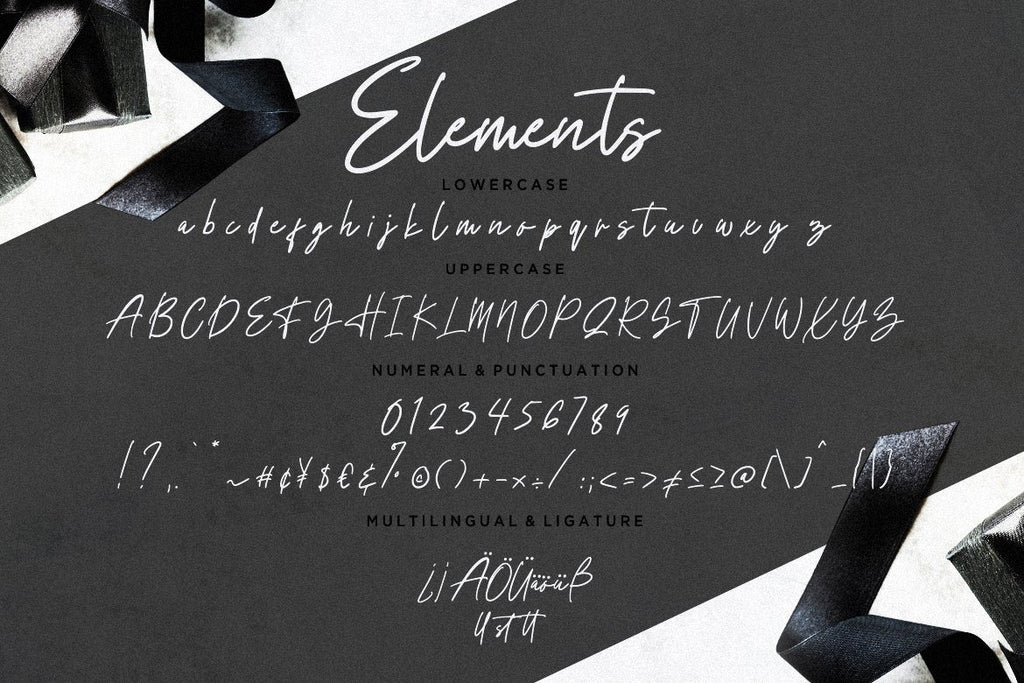 Elements
LOWERCASE
a b c d e f g h i j k l m n o p q r s t u v w x y z
UPPERCASE
A B C D E F G H I K L M N O P Q R S T U V W X Y Z
NUMERAL & PUNCTUATION
0 1 2 3 4 5 6 7 8 9
! ? , . ` " * ~ # ¢ ¥ $ € & % © ( ) + - × ÷ / : ; < = > ≠ ≤ ≥ @ [ \ ] ^ _ { | }
MULTILINGUAL & LIGATURE
¿ ¡ Ä Ö Ü ä ö ü ß
ll st tt